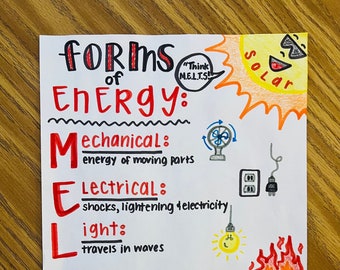 forms
of
ENERGY:
"Think
M.E.L.T.S!!"
SOLAR
Mechanical:
energy of moving parts
Electrical:
shocks, lightening & electricity
Light:
travels in waves